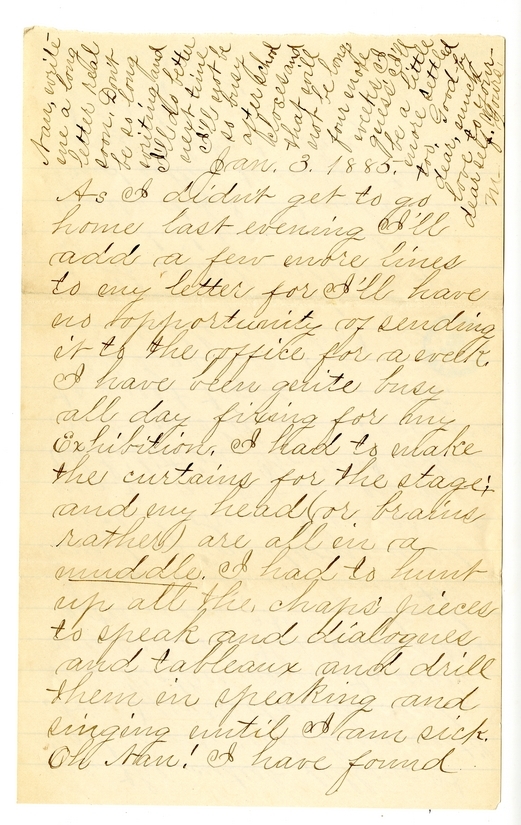 Nan, write
me a long
letter real
soon. Don't
be so long
writing and
I'll do better
next time
I'll not be
so busy
after school
closes and
that will
not be long
four more
weeks I
guess I'll
be a little
more settled
too. Good by
dear, much
love to your
dear self. Yours
M
Jan. 3. 1885.
As I didn't get to go
home last evening I'll
add a few more lines
to my letter for I'll have
no opportunity of sending
it to the office for a week.
I have been quite busy
all day fixing for my
Exhibition. I had to make
the curtains for the stage;
and my head (or brains
rather) are all in a
muddle. I had to hunt
up all the chaps' pieces
to speak and dialogues
and tableaux and drill
them in speaking and
singing until I am sick.
Oh Nan! I have found